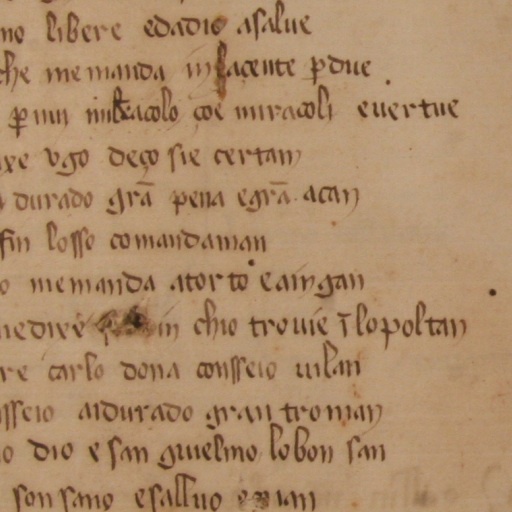 no libere edadio asalue
che memanda in lacente ꝑdue
ꝑ mil miracolo çoe miracoli euertue
ixe vgo deço sie certan
durado grā pena egrā acan
fin losso comandaman
o memanda atorto eaingan
medixe in chio trouie ī lopoltan
re carlo dona consseio uilan
nsseio aidurado gran troman
io dio e san guielmo lobon san
son sano esalluo